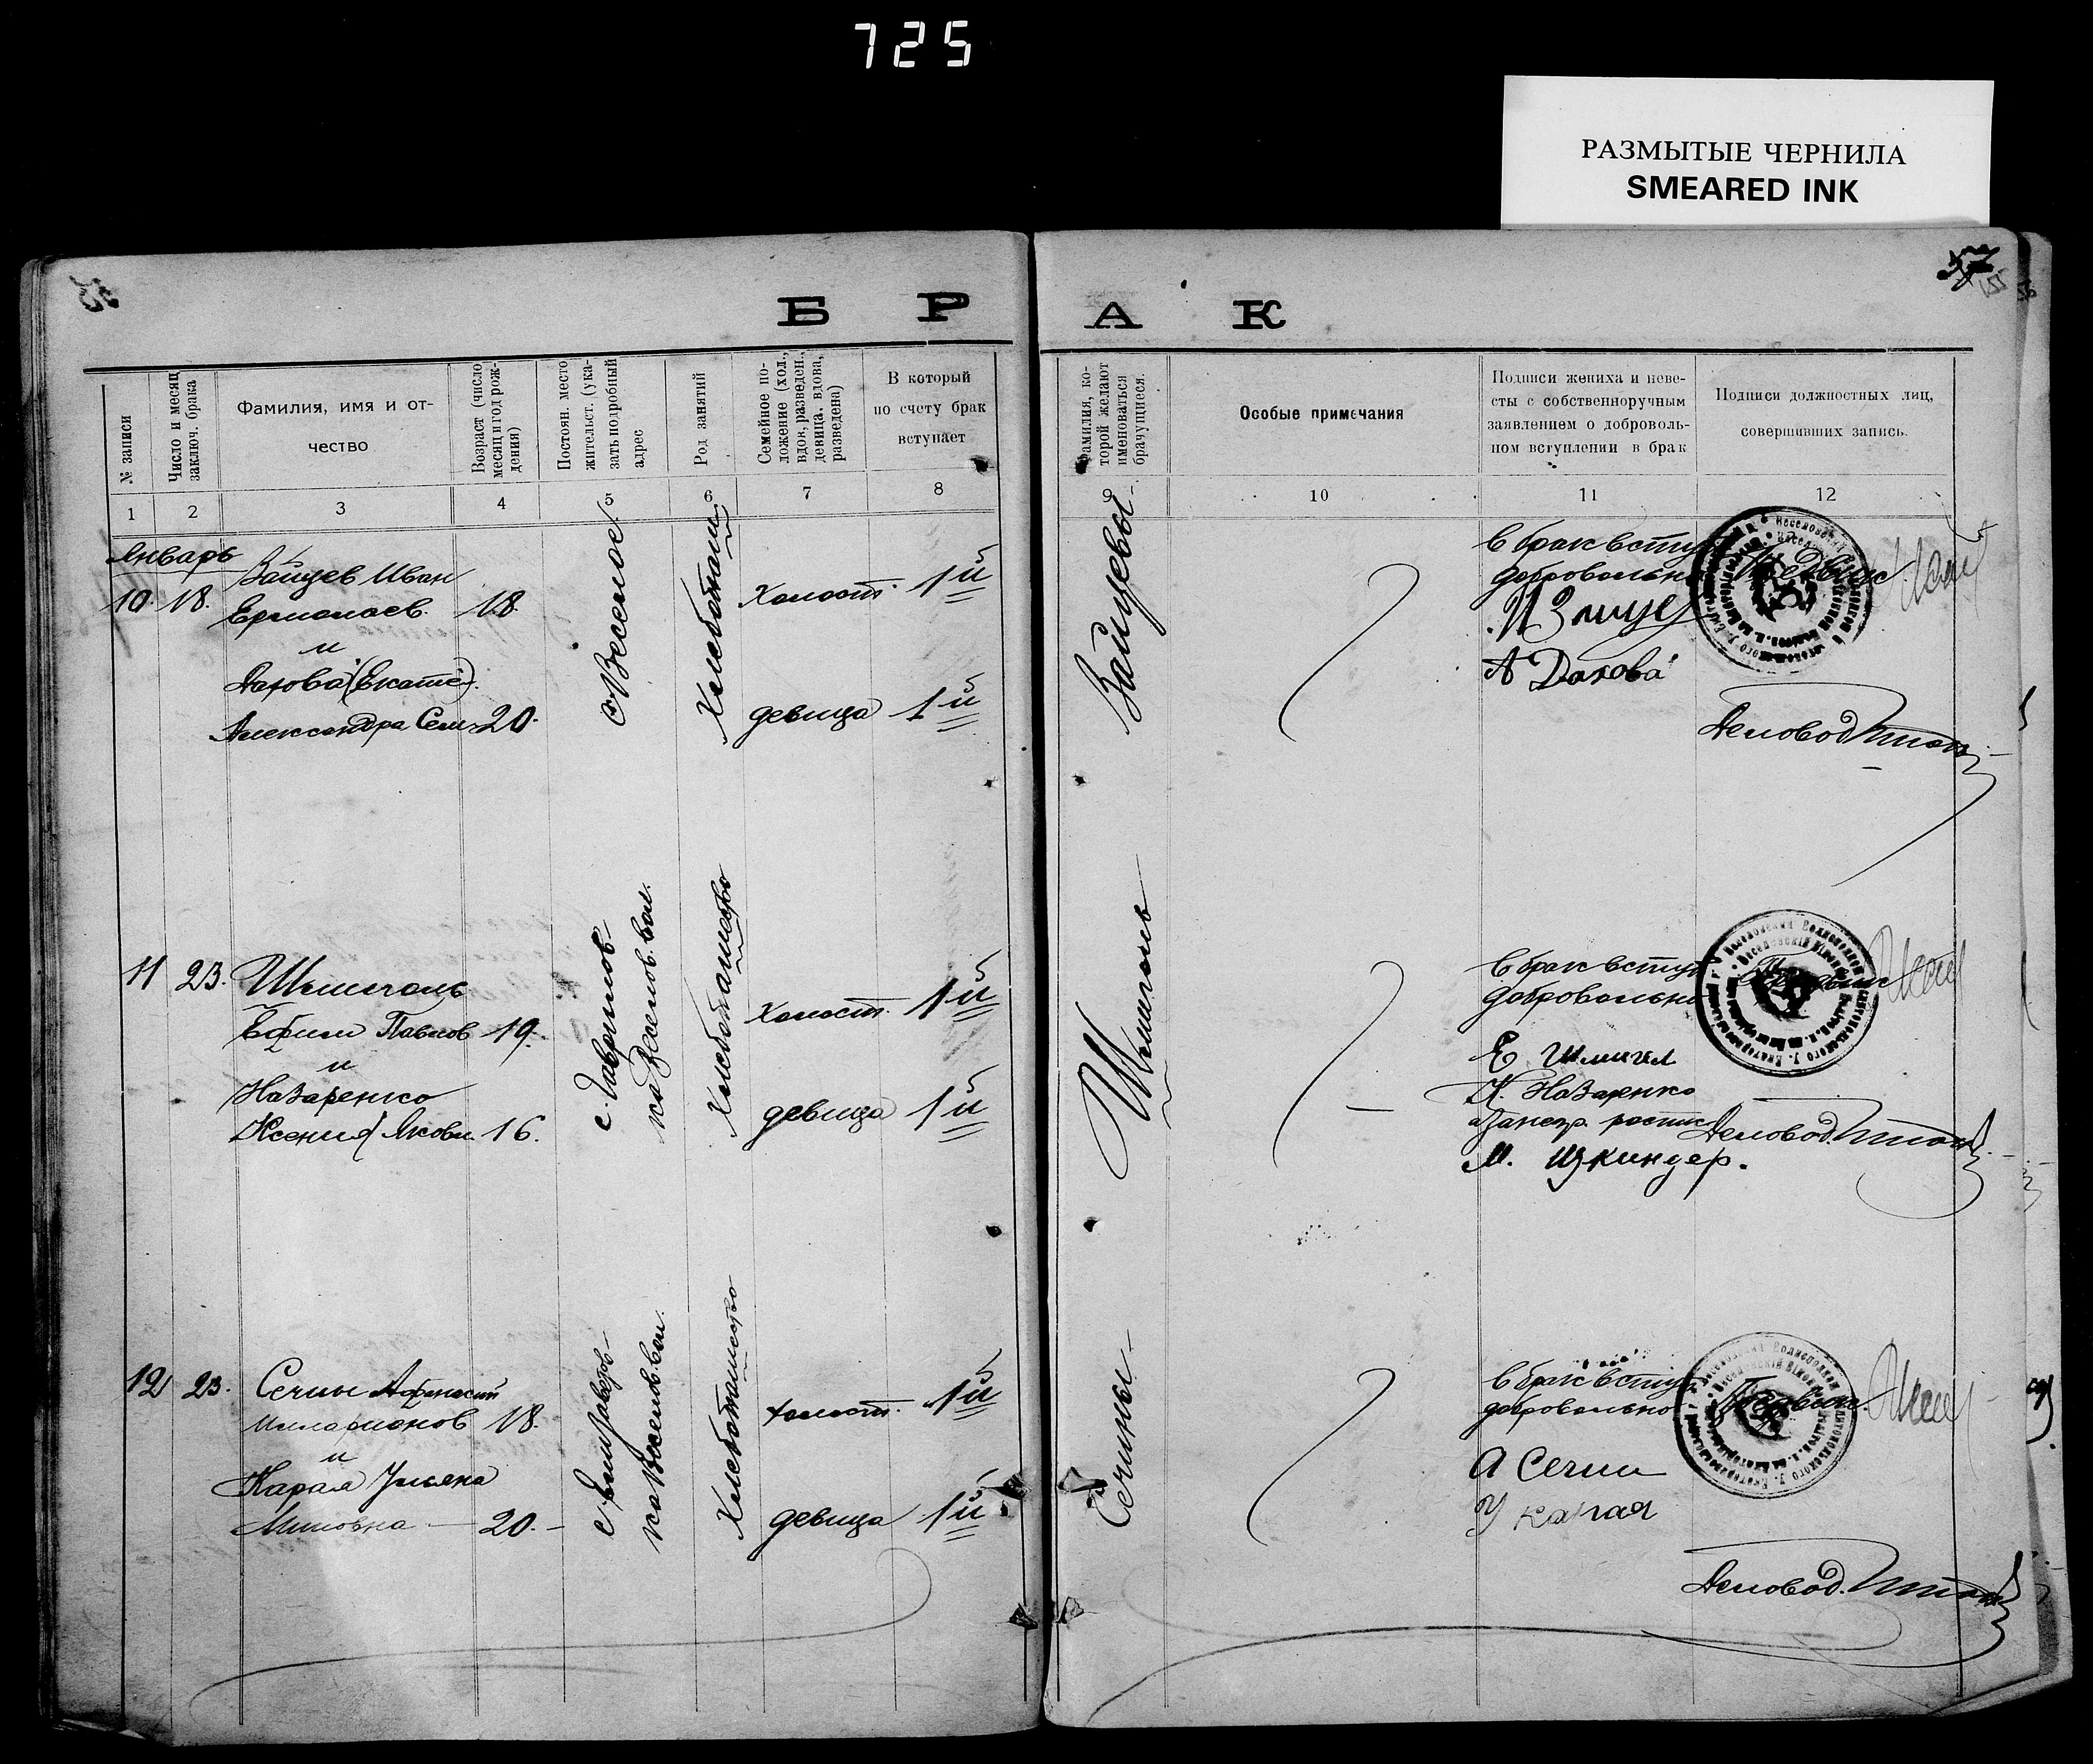 725
РАЗМЫТЫЕ ЧЕРНИЛА
SMEARED INK
57
БРАК
№ записи
Число и месяц
заключ. брака
Фамилия, имя и от-
чество
Возраст (число
месяц и год рож-
дения)
Постоян. место
жительст. (ука-
зать подробный
адрес
Род занятий
Семейное по-
ложение (хол.,
вдов, разведен.,
девица, вдова,
разведена)
В который
по счету брак
вступает
Фамилия, ко-
торой желают
именоваться
брачущиеся.
Особые примечания
Подписи жениха и неве-
сты с собственноручным
заявлением о доброволь-
ном вступлении в брак
Подписи должностных лиц,
совершивших запись.
1 2 3 4 5 6 7 8 9 10 11 12
Январь
10. 18.
Зайцев Иван
Ермолаев. 18.
и
Дахова (Екате).
Александра Сем. 20.
с Веселое
Хлебопаш.
Холост. 1й
девица 1й
Зайцевы
В брак вступ
добровольно
А Дахова
Деловод.
11 23.
Шмиголь
Ефим Павлов 19.
и
Назаренко
Ксения Яковл. 16.
с. Гаврилов-
ка Веселов. вол.
Хлебопашество
Холост. 1й
девица 1й
Шмиголь
В брак вступ
добровольно
Е Шмигел
К. Назаренко
За негр. роспис
Деловод.
12 23.
Сечин Афанасий
Илларионов 18.
и
Карая Ульяна
20.
с. Елизаветов-
ка Веселов. вол.
Хлебопашество
холост. 1й
девица 1й
Сечины
В брак вступ
добровольно
А Сечин
У Карая
Деловод.